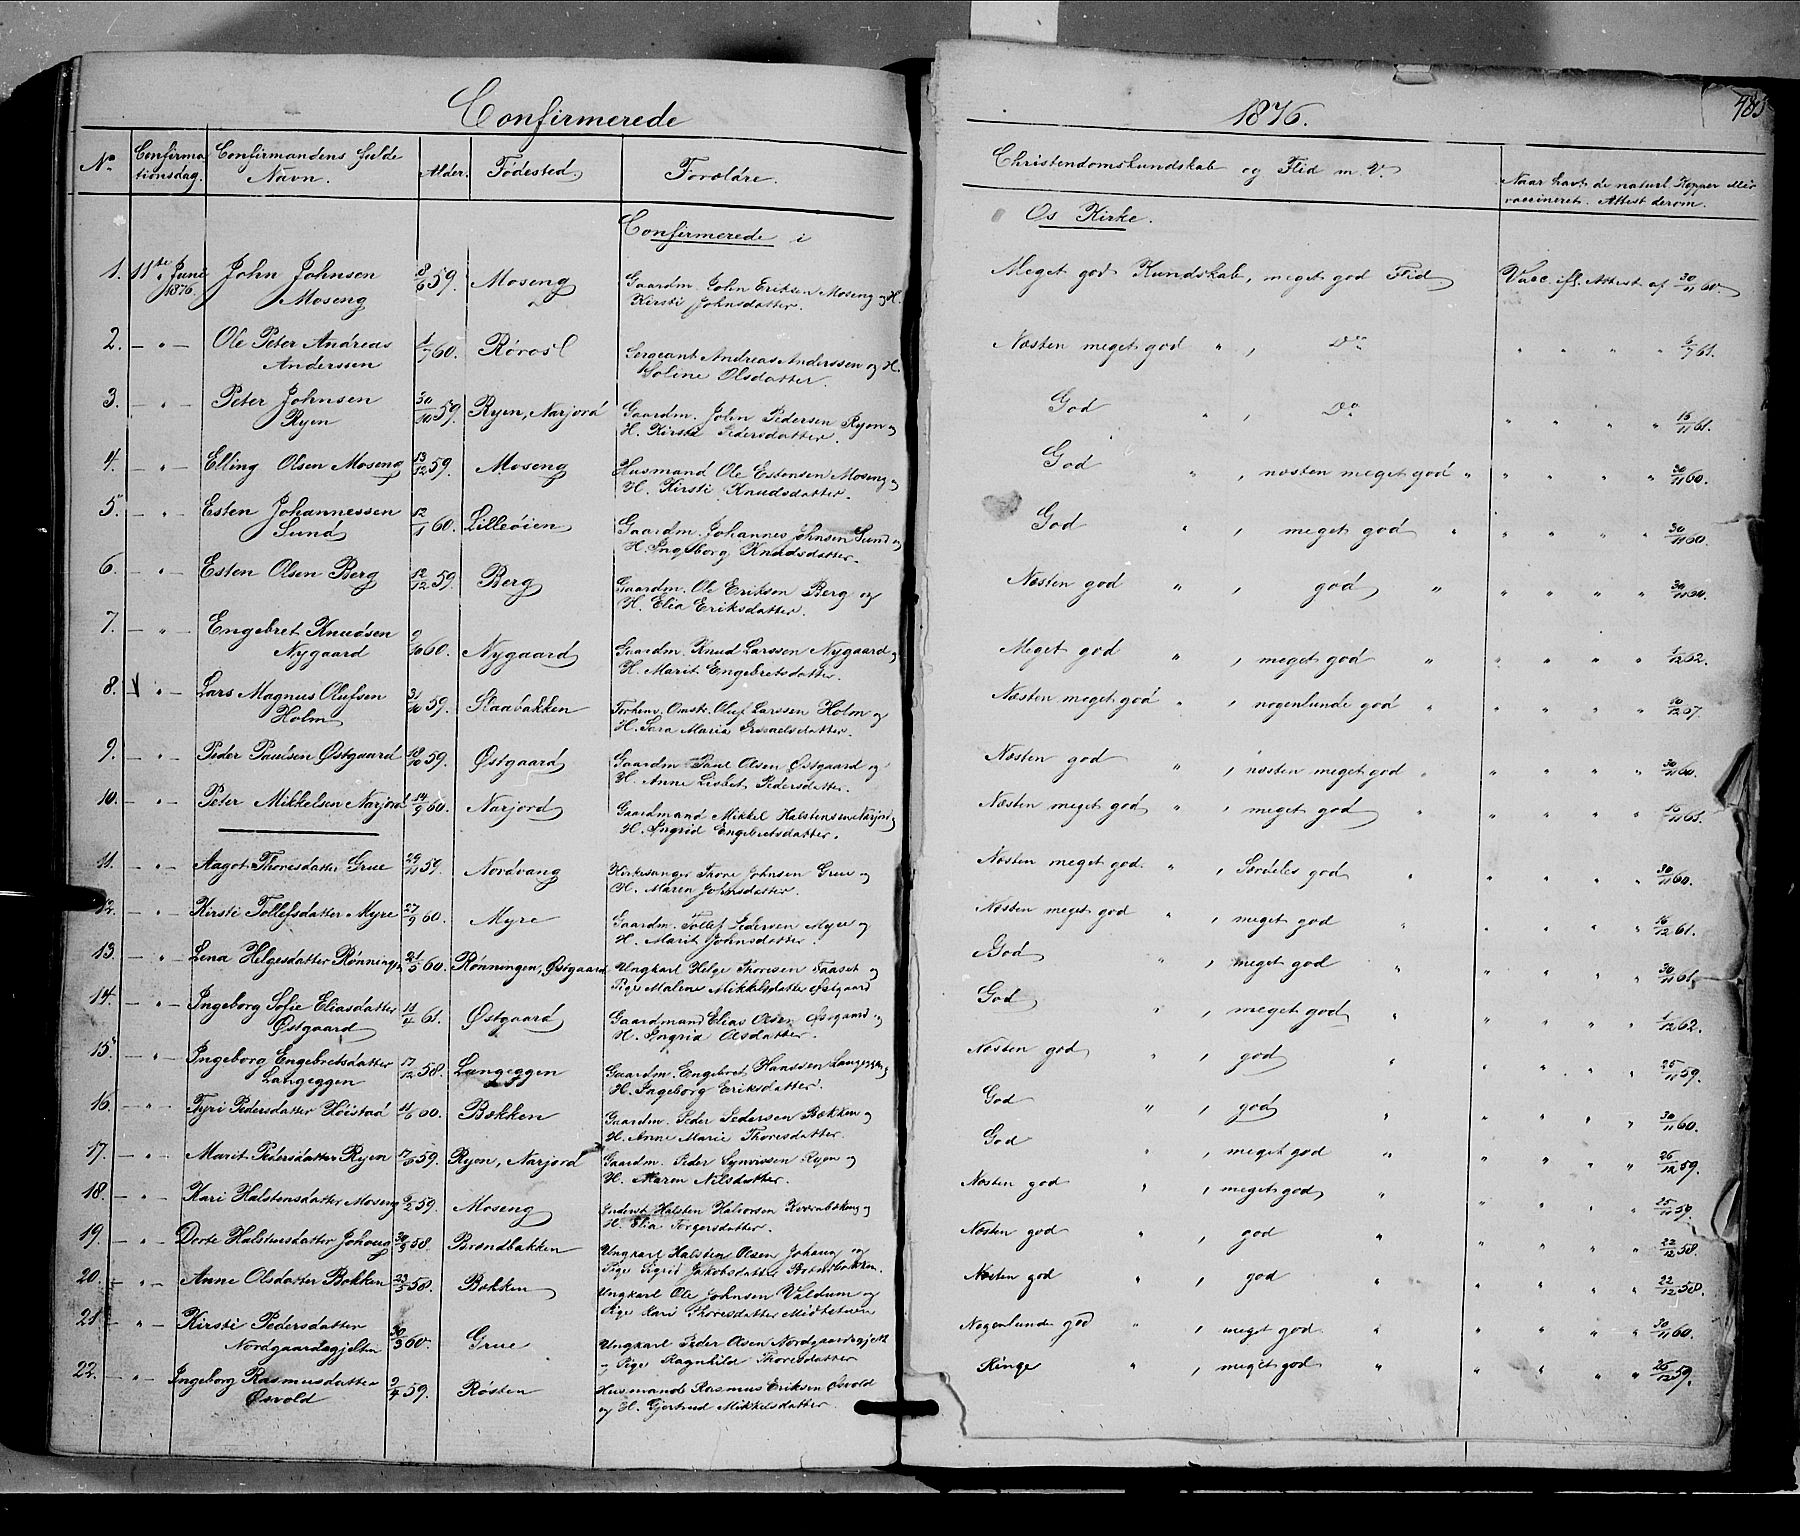 Confirmerede
1876.
485
No
Confirmationsdag.
Confirmandens fulde Navn.
Alder.
Fødested.
Forældre.
Christendomskundskab og Flid m. V.
Naar havt de naturl. Kopper eller vaccineret. Attest derom.
Confirmerede i
Os Kirke.
1. 11te Juni 1876. John Johnsen Moseng 8/6 59. Moseng Gaardm. John Eriksen Moseng og H. Kirsti Johnsdatter. Meget god Kundskab, meget god Flid Vacc. ifl. Attest af 30/11 60.
2. — " — Ole Peter Andreas Anderssen 1/7 60. Røros Sergeant Andreas Anderssen og H. Soline Olsdatter. Næsten meget god " , Do " " " " 6/7 61.
3. — " — Peter Johnsen Ryen 30/10 59. Ryen, Narjord Gaardm. John Pedersen Ryen og H. Kirsti Pedersdatter. God " , Do " " " " 16/11 61.
4. — " — Elling Olsen Moseng 13/12 59. Moseng Husmand Ole Estensen Moseng og H. Kirsti Knudsdatter. God " , næsten meget god " " " " " 30/11 60.
5. — " — Esten Johannessen Sund 12/1 60. Lilleøien Gaardm. Johannes Johnsen Sund og H. Ingeborg Knudsdatter. God " , meget god " " " " " 30/11 60.
6. — " — Esten Olsen Berg 12/12 59. Berg Gaardm. Ole Eriksen Berg og H. Elia Eriksdatter. Næsten god " , god " " " " " 30/11 60.
7. — " — Engebret Knudsen Nygaard 9/10 60. Nygaard Gaardm. Knud Larssen Nygaard og H. Marit Engebretsdatter. Meget god " , meget god " " " " " 1/12 62.
8. — " — Lars Magnus Olufsen Holm 31/10 59. Slaabakken Forhenv. Omstr. Oluf Larssen Holm og H. Sara Maria Israelsdatter. Næsten meget god " , nogenlunde god " " " " "
9. — " — Peder Paulsen Østgaard 18/10 59. Østgaard Gaardm. Paul Olsen Østgaard og H. Anne Lisbet Pedersdatter. Næsten god " , næsten meget god " " " " " 30/11 60.
10. — " — Peter Mikkelsen Narjord 14/9 60. Narjord Gaardmand Mikkel Halstensen Narjord og H. Ingrid Engebretsdatter. Næsten meget god " , meget god " " " " "
11. — " — Aagot Thoresdatter Grue 29/11 59. Nordvang Kirkesanger Thore Johnsen Grue og H. Maren Johnsdatter. Næsten meget god " , Særdeles god " " " " " 30/11 60.
12. — " — Kirsti Tollefsdatter Myre 27/9 60. Myre Gaardm. Tollef Pedersen Myre og H. Marit Johnsdatter. Næsten meget god " , meget god " " " " " 16/12 61.
13. — " — Lena Helgesdatter Rønningen 21/5 60. Rønningen, Østgaard Ungkarl Helge Thoresen Faaset og Pige Malene Mikkelsdatter Østgaard God " , meget god " " " " " 30/11 61.
14. — " — Ingeborg Sofie Eliasdatter Østgaard 11/4 61. Østgaard Gaardmand Elias Olsen Østgaard og H. Ingrid Olsdatter. God " , meget god " " " " " 1/12 62.
15. — " — Ingeborg Engebretsdatter Langeggen 17/12 58. Langeggen Gaardm. Engebret Hanssen Langeggen og H. Ingeborg Eriksdatter. Næsten god " , god " " " " " 25/11 59.
16. — " — Tyri Pedersdatter Høistad 11/6 60. Bækken Gaardm. Peder Pedersen Bækken og H. Anne Marie Thoresdatter. God " , god " " " " " 30/11 60.
17. — " — Marit Pedersdatter Ryen 59. Ryen, Narjord Gaardm. Peder Ryen og H. Maren Nilsdatter. God " , meget god " " " " " 26/12 59.
18. — " — Kari Halstensdatter Moseng 9/2 59. Moseng Inderst Halsten Halvorsen og H. Elia Torgersdatter. Næsten god " , meget god " " " " " 25/11 59.
19. — " — Dorte Halstensdatter 30/9 58. Brændbakken Ungkarl Halsten Olsen og Pige Sigrid Jakobsdatter Brændbakken. Næsten god " , god " " " " " 22/12 58.
20. — " — Anne Olsdatter Bækken 23/5 58. Bækken Ungkarl Ole Johnsen Valdum og Pige Kari Thoresdatter Næsten god " , god " " " " " 22/12 58.
21. — " — Kirsti Pedersdatter Nordgaardsgjelten 30/3 60. Grue Ungkarl Peder Olsen Nordgaardsgjelt og Pige Ragnhild Thoresdatter Nogenlunde god " , meget god " " " " " 30/11 60.
22. — " — Ingeborg Rasmusdatter Øsvold 9/4 59. Røsten Husmand Rasmus Eriksen Øsvold og H. Gjertrud Mikkelsdatter. Ringe " , meget god " " " " " 26/12 59.